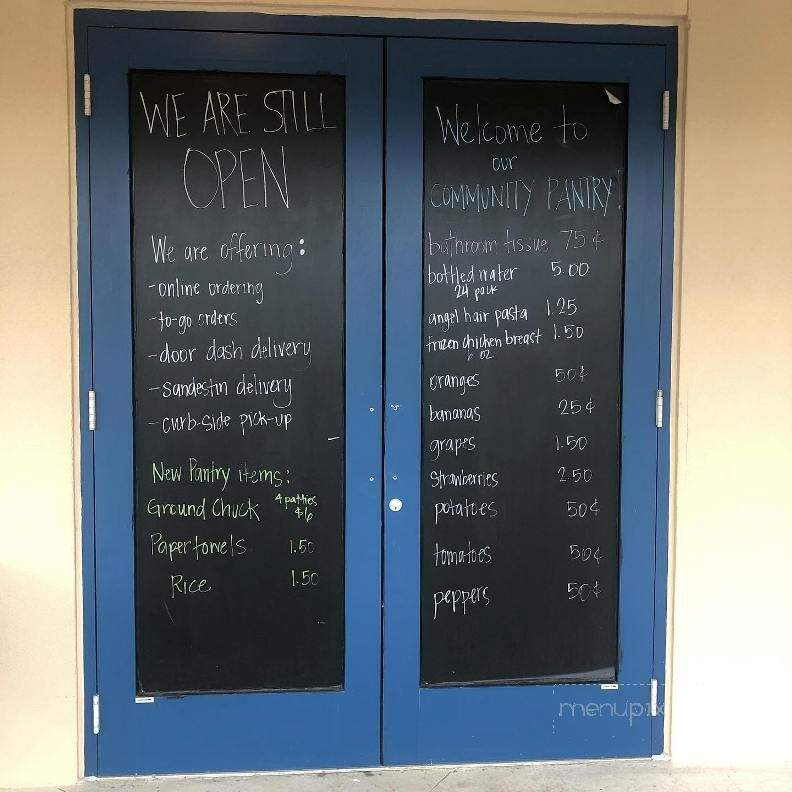 WE ARE STILL
OPEN
We are offering:
-online ordering
-to-go orders
-door dash delivery
-sandestin delivery
-curb-side pick-up
New Pantry items:
Ground Chuck 4 patties
$6
Papertowels 1.50
Rice 1.50
Welcome to
our
COMMUNITY PANTRY!
bathroom tissue 75¢
bottled water 5.00
24 pack
angel hair pasta 1.25
frozen chicken breast 1.50
oz
oranges 50¢
bananas 25¢
grapes 1.50
strawberries 2.50
potatoes 50¢
tomatoes 50¢
peppers 50¢
menupix